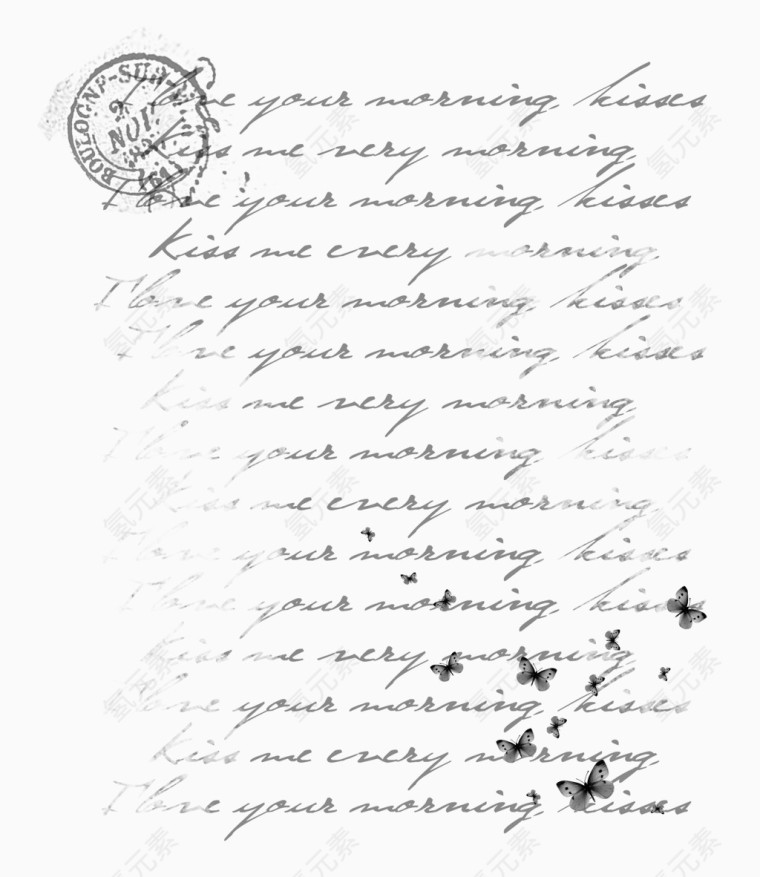 BOULOGNE-SUR-M
2
NOV.
I love your morning, kisses
Kiss me very morning,
I love your morning, kisses
Kiss me every morning,
I love your morning, kisses
I love your morning, kisses
Kiss me very morning,
I love your morning, kisses
Kiss me every morning,
I love your morning, kisses
I love your morning, kisses
Kiss me very morning,
I love your morning, kisses
Kiss me every morning,
I love your morning, kisses
氢元素